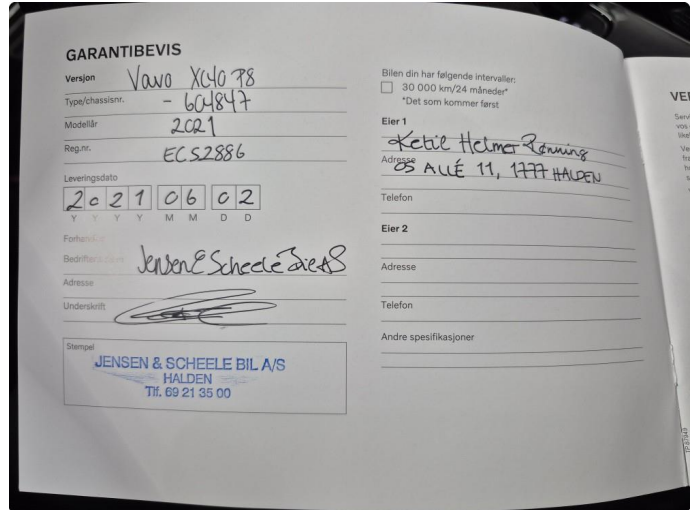 GARANTIBEVIS
Versjon Volvo XC40 P8
Type/chassisnr. - 604847
Modellår 2021
Reg.nr. EC52886
Leveringsdato
2021 06 02
Y Y Y Y M M D D
Bedriftens
Jensen & Scheele Bil AS
Adresse
Underskrift
Stempel
JENSEN & SCHEELE BIL A/S
HALDEN
Tlf. 69 21 35 00
Bilen din har følgende intervaller:
30 000 km/24 måneder*
*Det som kommer først
Eier 1
Ketil Helmer Rønning
Adresse OS ALLÉ 11, 1777 HALDEN
Telefon
Eier 2
Adresse
Telefon
Andre spesifikasjoner